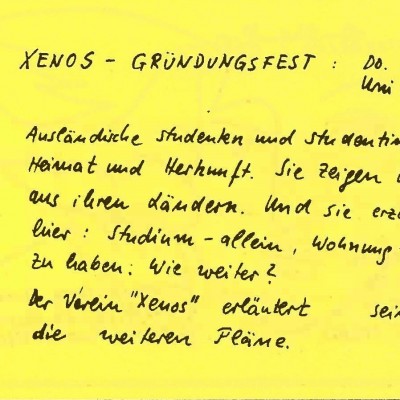 XENOS - GRÜNDUNGSFEST : Do.
Uni
Ausländische Studenten und Studentin
Heimat und Herkunft. Sie zeigen
aus ihren Ländern. Und sie erzä
hier : Studium - allein, Wohnung -
zu haben. Wie weiter?
Der Verein "Xenos" erläutert sei
die weiteren Pläne.